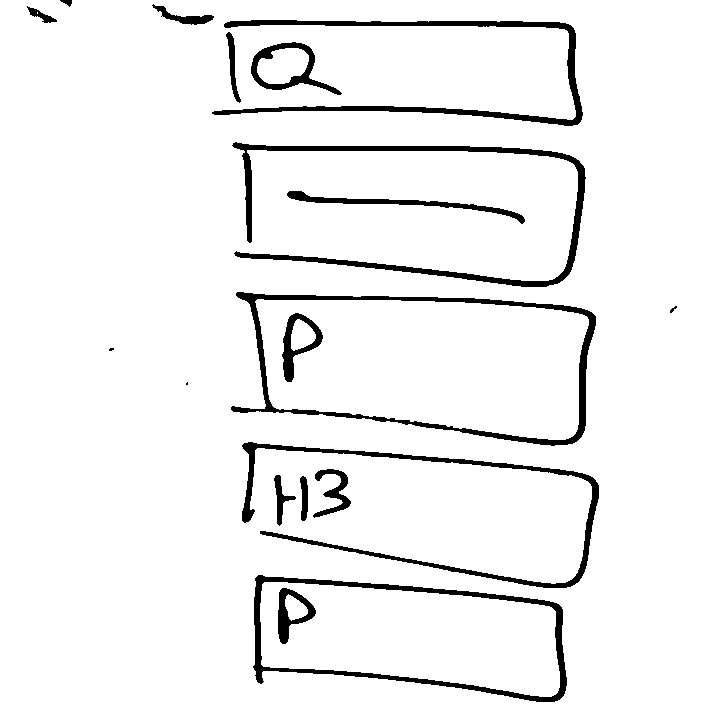 Q
P
H3
P